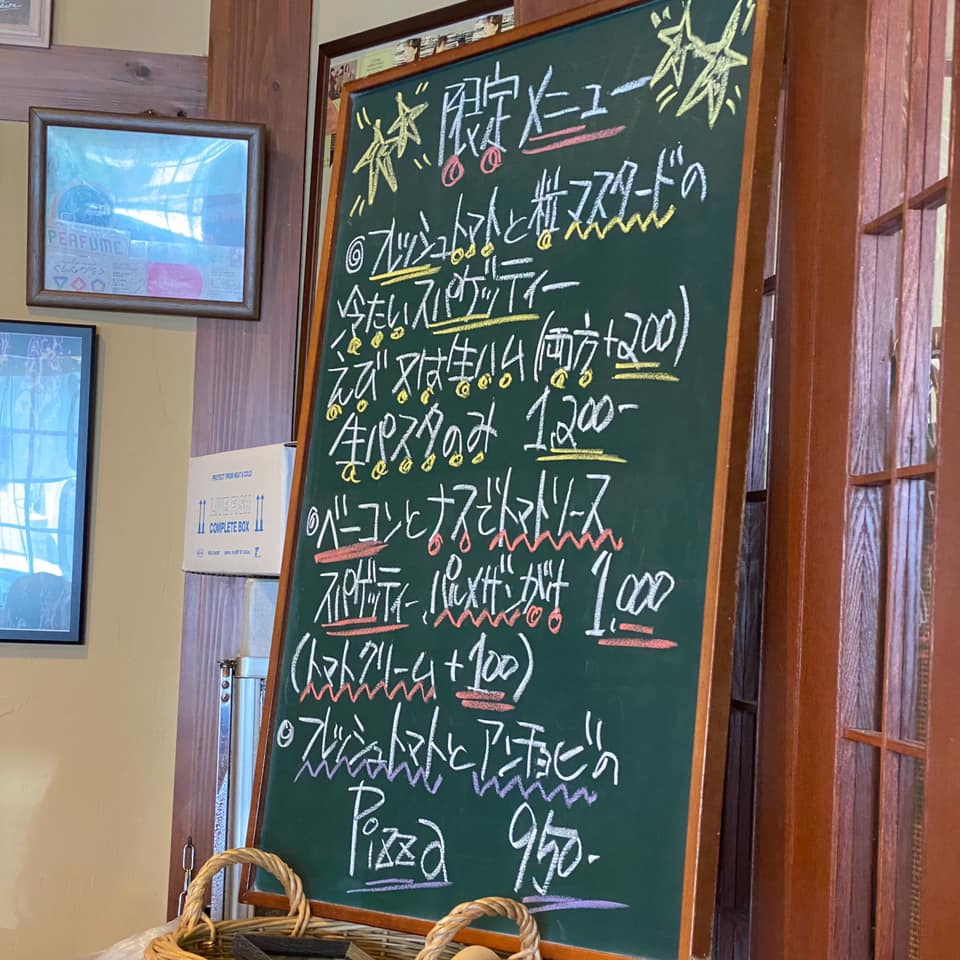 限定メニュー
◎フレッシュトマトと粒マスタードの
冷たいスパゲッティー
えび又は生ハム(両方+200)
生パスタのみ 1,200-
◎ベーコンとナスでトマトソース
スパゲッティー、パルメザンがけ 1,000
(トマトクリーム+100)
◎フレッシュトマトとアンチョビの
Pizza 950-
PERFUME
PROTECT FROM HEAT & COLD
LIVE FISH
COMPLETE BOX